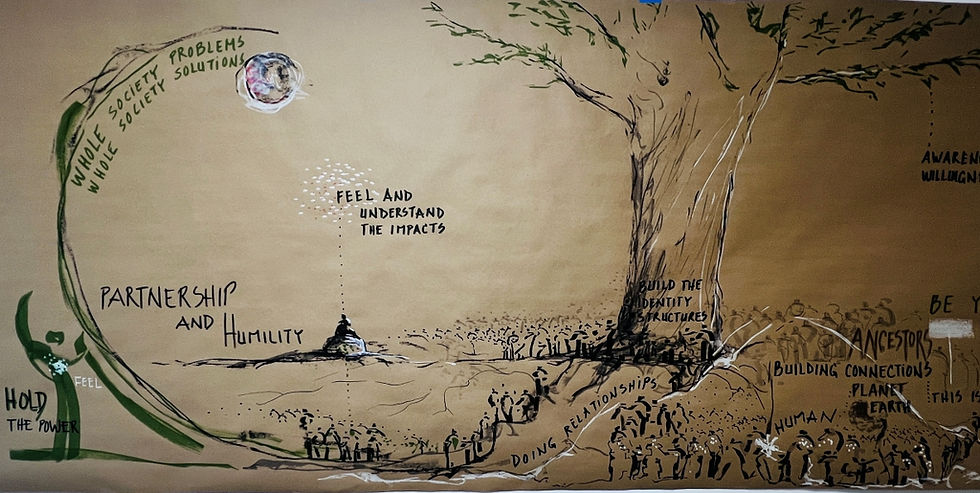 WHOLE SOCIETY PROBLEMS
WHOLE SOCIETY SOLUTIONS
FEEL AND
UNDERSTAND
THE IMPACTS
PARTNERSHIP
AND HUMILITY
FEEL
HOLD
THE POWER
BUILD THE
IDENTITY
STRUCTURES
DOING RELATIONSHIPS
ANCESTORS
BUILDING CONNECTIONS
PLANET
EARTH
HUMAN
BE
THIS IS